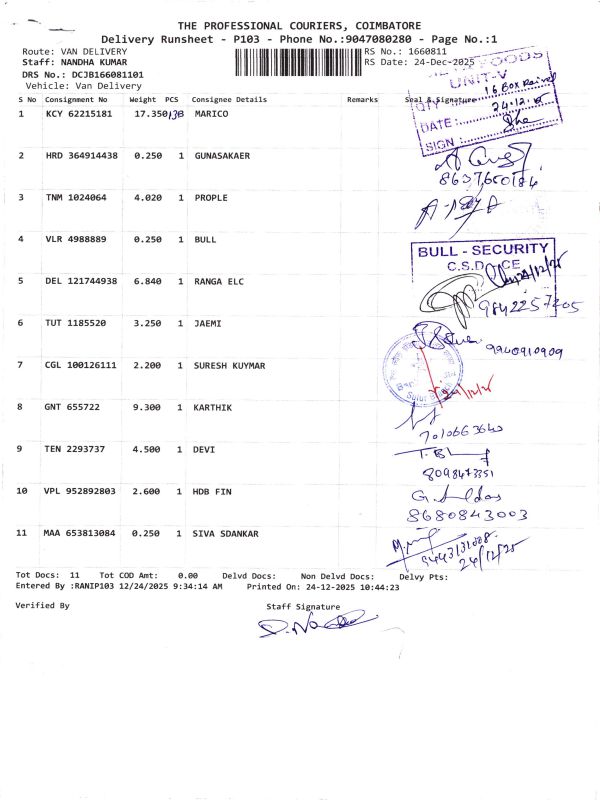 THE PROFESSIONAL COURIERS, COIMBATORE
Delivery Runsheet - P103 - Phone No.:9047080280 - Page No.:1
Route: VAN DELIVERY
RS No.: 1660811
Staff: NANDHA KUMAR
RS Date: 24-Dec-2025
DRS No.: DCJB166081101
Vehicle: Van Delivery
FOODS
UNIT-V
QTY : 16 Box
DATE : 24.12.25
SIGN :
S No Consignment No Weight PCS Consignee Details Remarks Seal & Signature
1 KCY 62215181 17.350 MARICO
2 HRD 364914438 0.250 1 GUNASAKAER
8637650184
3 TNM 1024064 4.020 1 PROPLE
4 VLR 4988889 0.250 1 BULL
BULL - SECURITY
24/12/25
5 DEL 121744938 6.840 1 RANGA ELC
9842257205
6 TUT 1185520 3.250 1 JAEMI
9940910909
7 CGL 100126111 2.200 1 SURESH KUYMAR
Sulur
8 GNT 655722 9.300 1 KARTHIK
7010663640
9 TEN 2293737 4.500 1 DEVI
8098473351
10 VPL 952892803 2.600 1 HDB FIN
8680843003
11 MAA 653813084 0.250 1 SIVA SDANKAR
24/12/25
Tot Docs: 11 Tot COD Amt: 0.00 Delvd Docs: Non Delvd Docs: Delvy Pts:
Entered By :RANIP103 12/24/2025 9:34:14 AM Printed On: 24-12-2025 10:44:23
Verified By Staff Signature